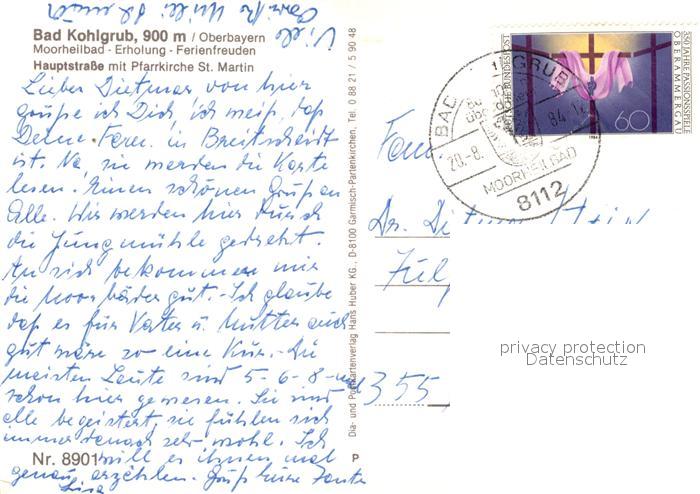 Bad Kohlgrub, 900 m / Oberbayern
Moorheilbad - Erholung - Ferienfreuden
Hauptstraße mit Pfarrkirche St. Martin
Lieber Dietmar von hier
grüße ich Dich, ich weiß, daß
Deine Fam. in Breitscheidt
ist. Na sie werden die Karte
lesen. Einen schönen Gruß an
Alle. Wir werden hier durch
die Jungmühle gedreht.
An sich bekommen mir
die Moorbäder gut. Ich glaube
daß es für Vater u. Mutter auch
gut wäre so eine Kur. Die
meisten Leute sind 5-6-8-mal
schon hier gewesen. Sie sind
alle begeistert, sie fühlen sich
immer danach sehr wohl. Ich
will es ihnen mal
genau erzählen. Gruß Eure Tante
Viele
Nr. 8901
P
Dia- und Postkartenverlag Hans Huber KG., D-8100 Garmisch-Partenkirchen, Tel. 0 88 21 / 5 90 48
350 JAHRE PASSIONSSPIELE
OBERAMMERGAU
DEUTSCHE BUNDESPOST
60
BAD KOHLGRUB
20.-8. 84.-12
MOORHEILBAD
8112
Fam.
Dr.
Jül
355
privacy protection
Datenschutz